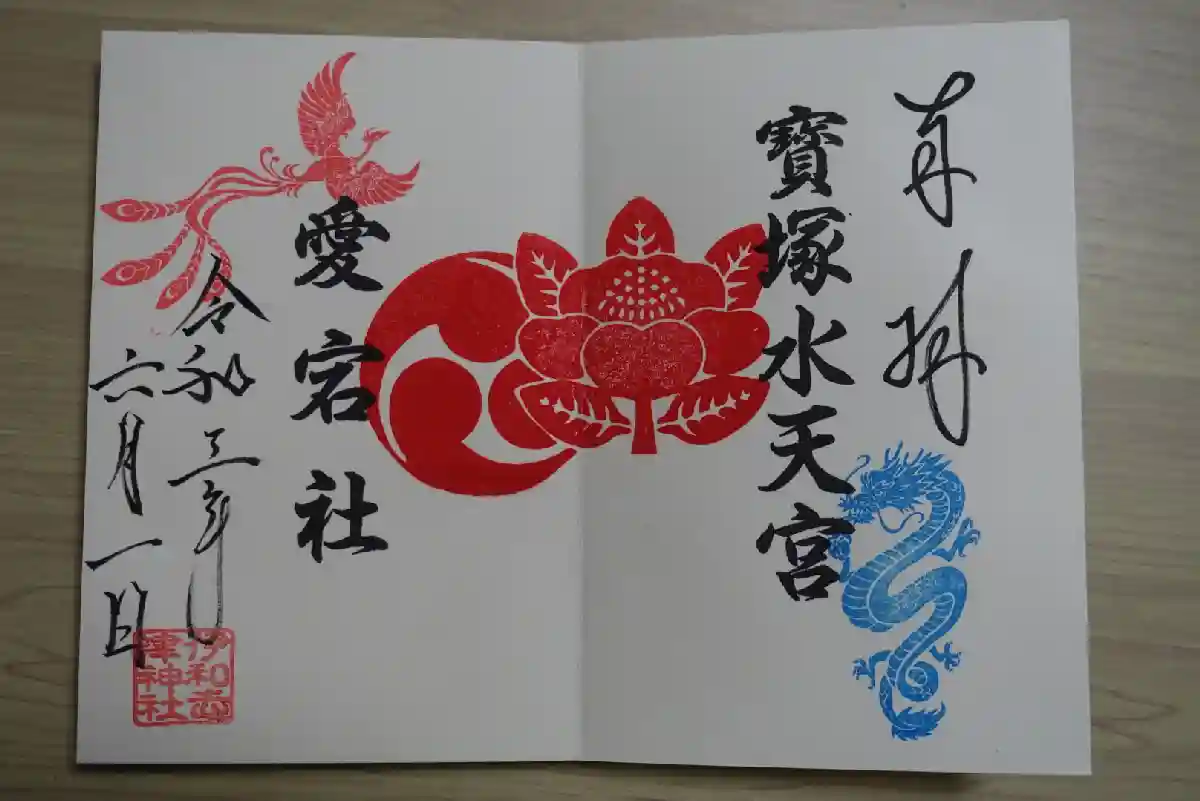 奉拝
寶塚水天宮
愛宕社
令和三年
六月一日
伊和志
津神社